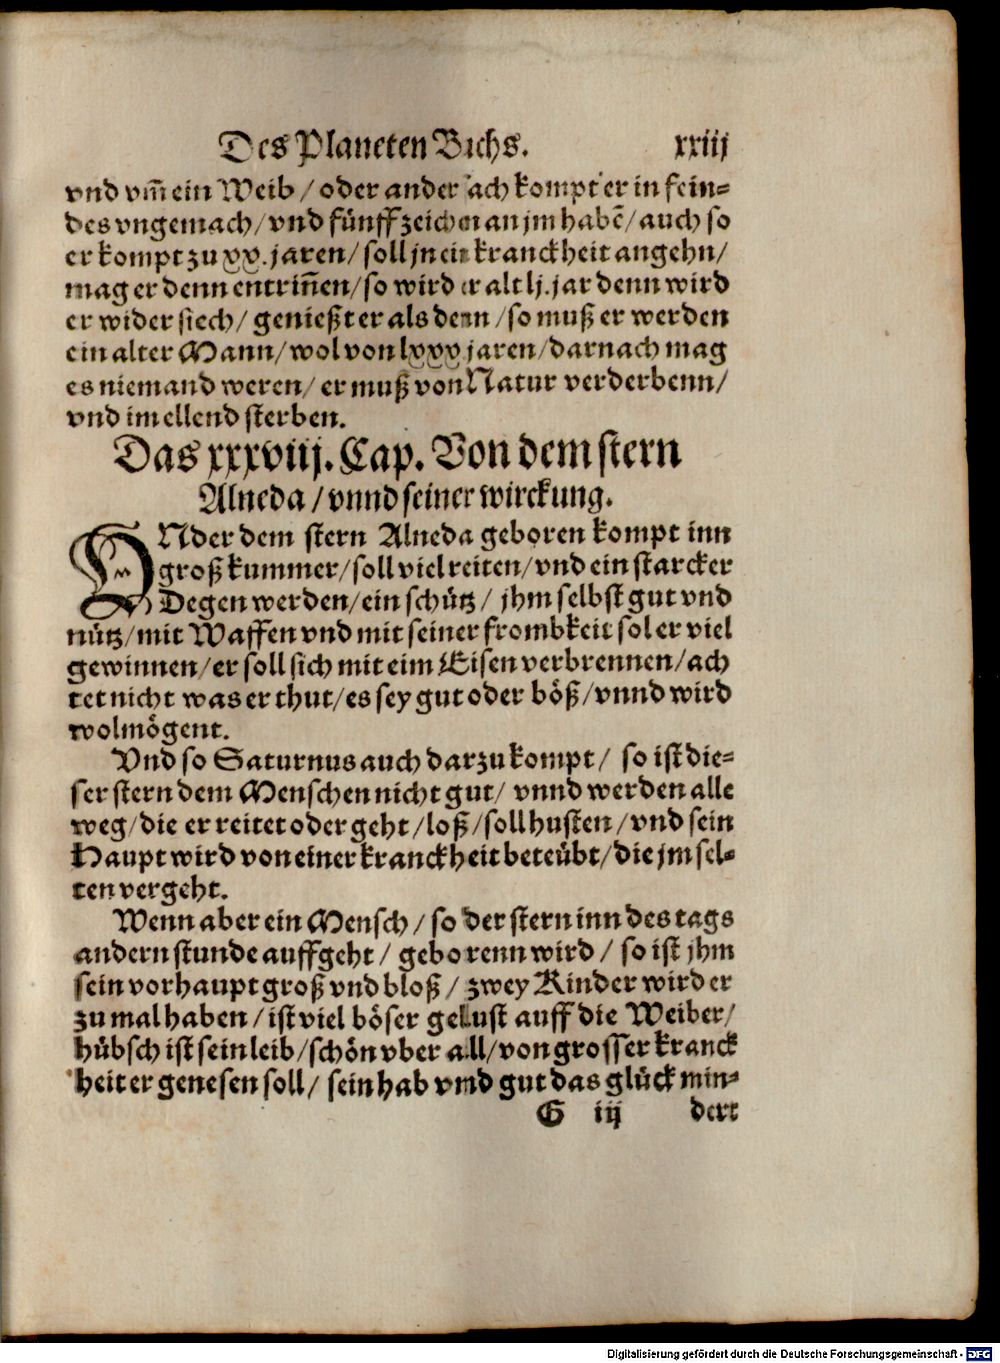 Des Planeten Buchs. xxiij
vnd vm̃ ein Weib / oder ander ach kompt er in fein=
des vngemach / vnd fünff zeichen an jm habẽ / auch so
er kompt zu xx. jaren / soll jn ein kranckheit angehn /
mag er denn entriñen / so wird er alt lj. jar denn wird
er wider siech / genießt er als denn / so muß er werden
ein alter Mann / wol von lxxx jaren / darnach mag
es niemand weren / er muß von Natur verderbenn /
vnd im ellend sterben.
Das xxxviij. Cap. Von dem stern
Alneda / vnnd seiner wirckung.
VNder dem stern Alneda geboren kompt inn
groß kummer / soll viel reiten / vnd ein starcker
Degen werden / ein schütz / jhm selbst gut vnd
nütz / mit Waffen vnd mit seiner frombkeit sol er viel
gewinnen / er soll sich mit eim Eisen verbrennen / ach
tet nicht was er thut / es sey gut oder böß / vnnd wird
wolmögent.
Vnd so Saturnus auch darzu kompt / so ist die=
ser stern dem Menschen nicht gut / vnnd werden alle
weg / die er reitet oder geht / loß / soll husten / vnd sein
Haupt wird von einer kranckheit beteübt / die jm sel=
ten vergeht.
Wenn aber ein Mensch / so der stern inn des tags
andern stunde auffgeht / geborenn wird / so ist jhm
sein vorhaupt groß vnd bloß / zwey Kinder wird er
zumal haben / ist viel böser gelust auff die Weiber /
hübsch ist sein leib / schön vber all / von grosser kranck
heit er genesen soll / sein hab vnd gut das glück min=
G iij dert
Digitalisierung gefördert durch die Deutsche Forschungsgemeinschaft - DFG